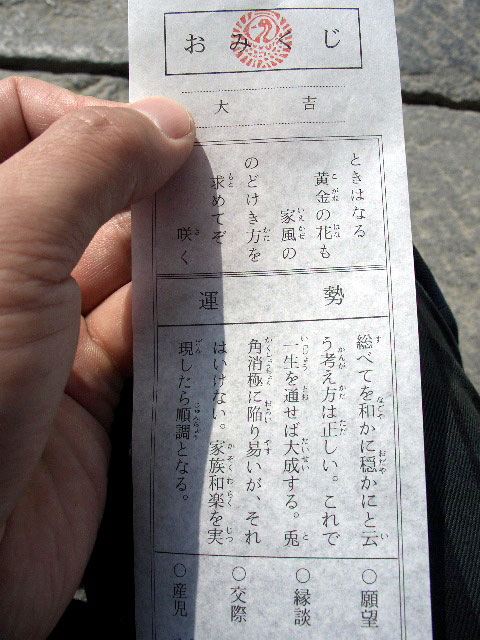 おみくじ
大吉
ときはなる
黄金の花も
家風の
のどけき方を
求めてぞ
咲く
運勢
総べてを和かに穏かにと云
う考え方は正しい。これで
一生を通せば大成する。兎
角消極に陥り易いが、それ
はいけない。家族和楽を実
現したら順調となる。
○願望
○縁談
○交際
○産児